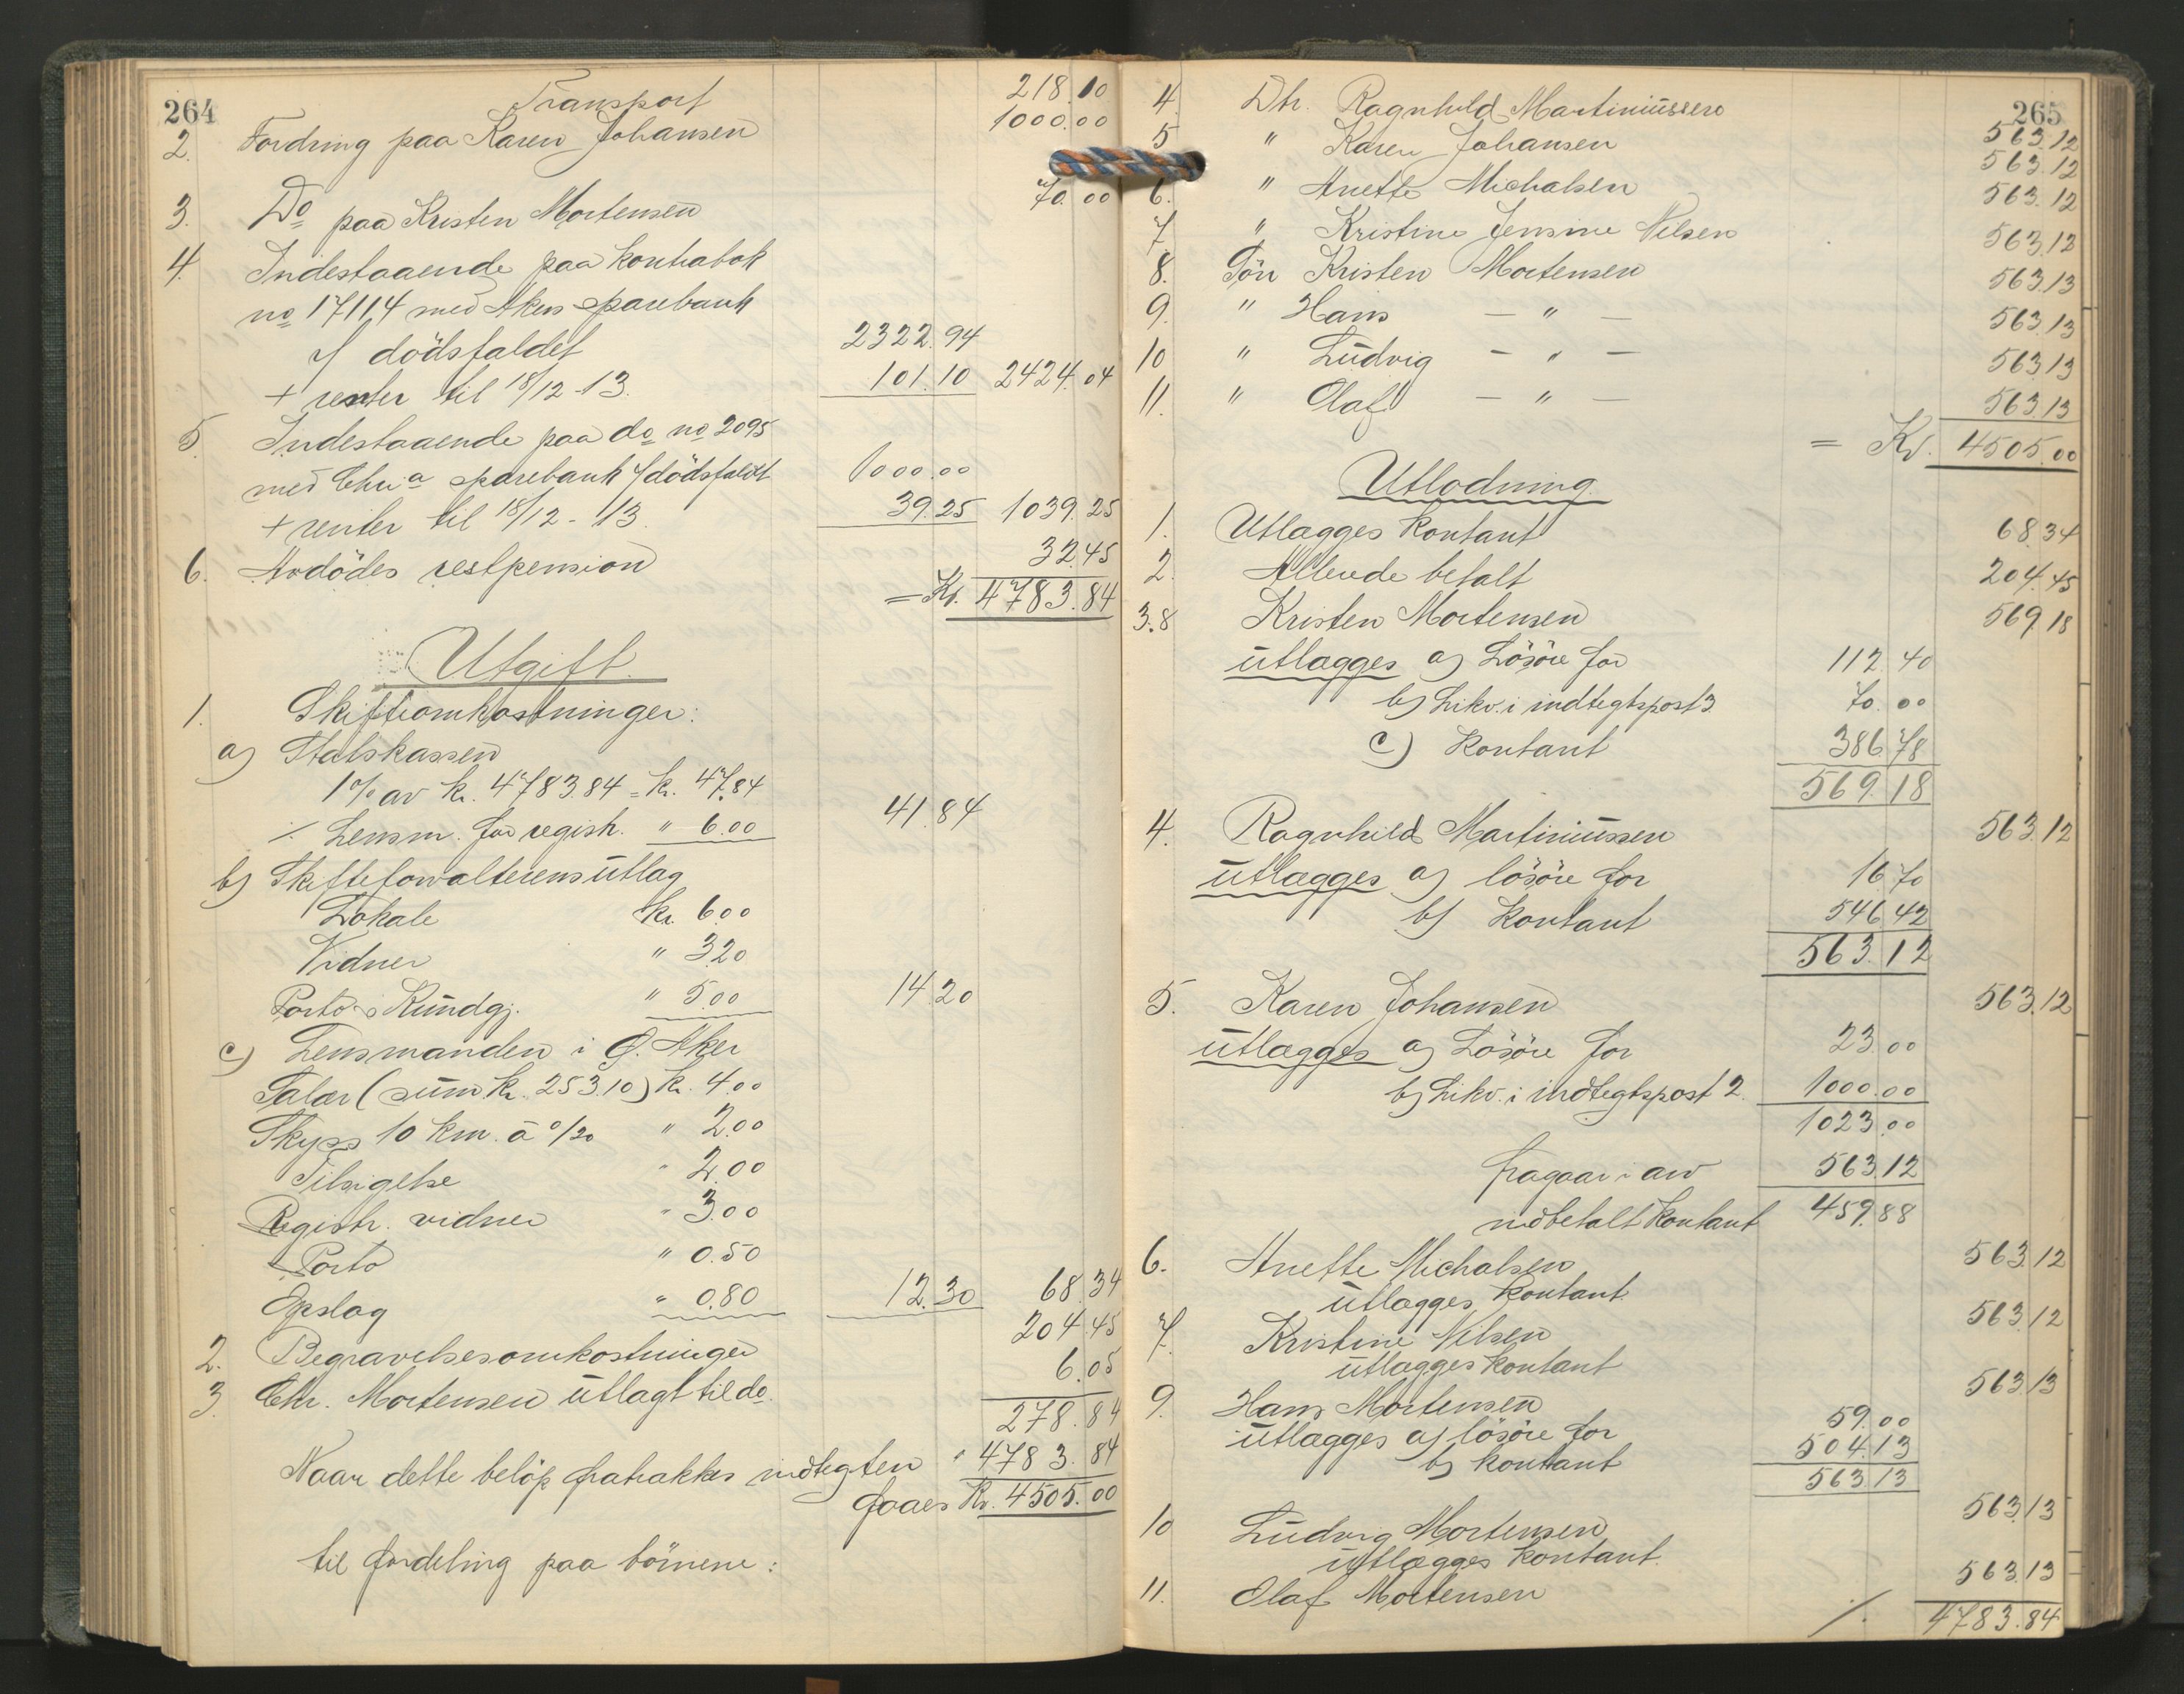 264
Transport 218.10
2. Fordring paa Karen Johansen 1000.00
3. Do paa Kristen Mortensen 70.00
4. Indestaaende paa kontrabok
no 17114 med Akers sparebank
v/ dödsfaldet 2322.94
+ renter til 18/12-13. 101.10 2424.04
5. Indestaaende paa do no 2095
med Chr.a sparebank v/dödsfaldet 1000.00
+ renter til 18/12-13. 39.25 1039.25
6. Avdödes restpension 32.45
= Kr. 4783.84
Utgift.
1. Skifteomkostninger:
a) Statskassen
1% av kr. 4783.84 = kr. 47.84
÷ Lensm. for regist. " 6.00 41.84
b) Skifteforvalterens utlæg
Lokale kr. 6.00
Vidner " 3.20
Porto o Kundgj. " 5.00 14.20
c) Lensmanden i Ø. Aker
Salær (sum kr. 253.10) kr. 4.00
Skyss 10 km. à 0/20 " 2.00
Tilsigelse " 2.00
Registr. vidner " 3.00
Porto " 0.50
Opslag " 0.80 12.30 68.34
2. Begravelsesomkostninger 204.45
3. Chr. Mortensen utlagt til do. 6.05
278.84
Naar dette belöp fratrækkes indtegten " 4783.84
faaes Kr. 4505.00
til fordeling paa börnene:
265
4. Dtr. Ragnhild Martiniussen 563.12
5. " Karen Johansen 563.12
6. " Anette Michalsen 563.12
7. " Kristine Jensine Nilsen 563.12
8. Sön Kristen Mortensen 563.13
9. " Hans — " — 563.13
10 " Ludvig — " — 563.13
11. " Olaf — " — 563.13
= Kr. 4505.00
Utlodning.
1. Utlægges kontant 68.34
2. Allerede betalt 204.45
3.8 Kristen Mortensen 569.18
utlægges a) Lösöre for 112.40
b) Likv. i indtegtspost 3. 70.00
c) kontant 386.78
569.18
4. Ragnhild Martiniussen 563.12
utlægges a) lösöre for 16.70
b) kontant 546.42
563.12
5. Karen Johansen 563.12
utlægges a) Lösöre for 23.00
b) Likv. i indtegtspost 2. 1000.00
1023.00
fragaar i arv 563.12
indbetalt kontant 459.88
6. Anette Michalsen 563.12
utlægges kontant.
7. Kristine Nilsen 563.12
utlægges kontant
9. Hans Mortensen 563.13
utlægges a) lösöre for 59.00
b) kontant 504.13
563.13
10 Ludvig Mortensen 563.13
utlægges kontant.
11. Olaf Mortensen 563.13
·/· 4783.84